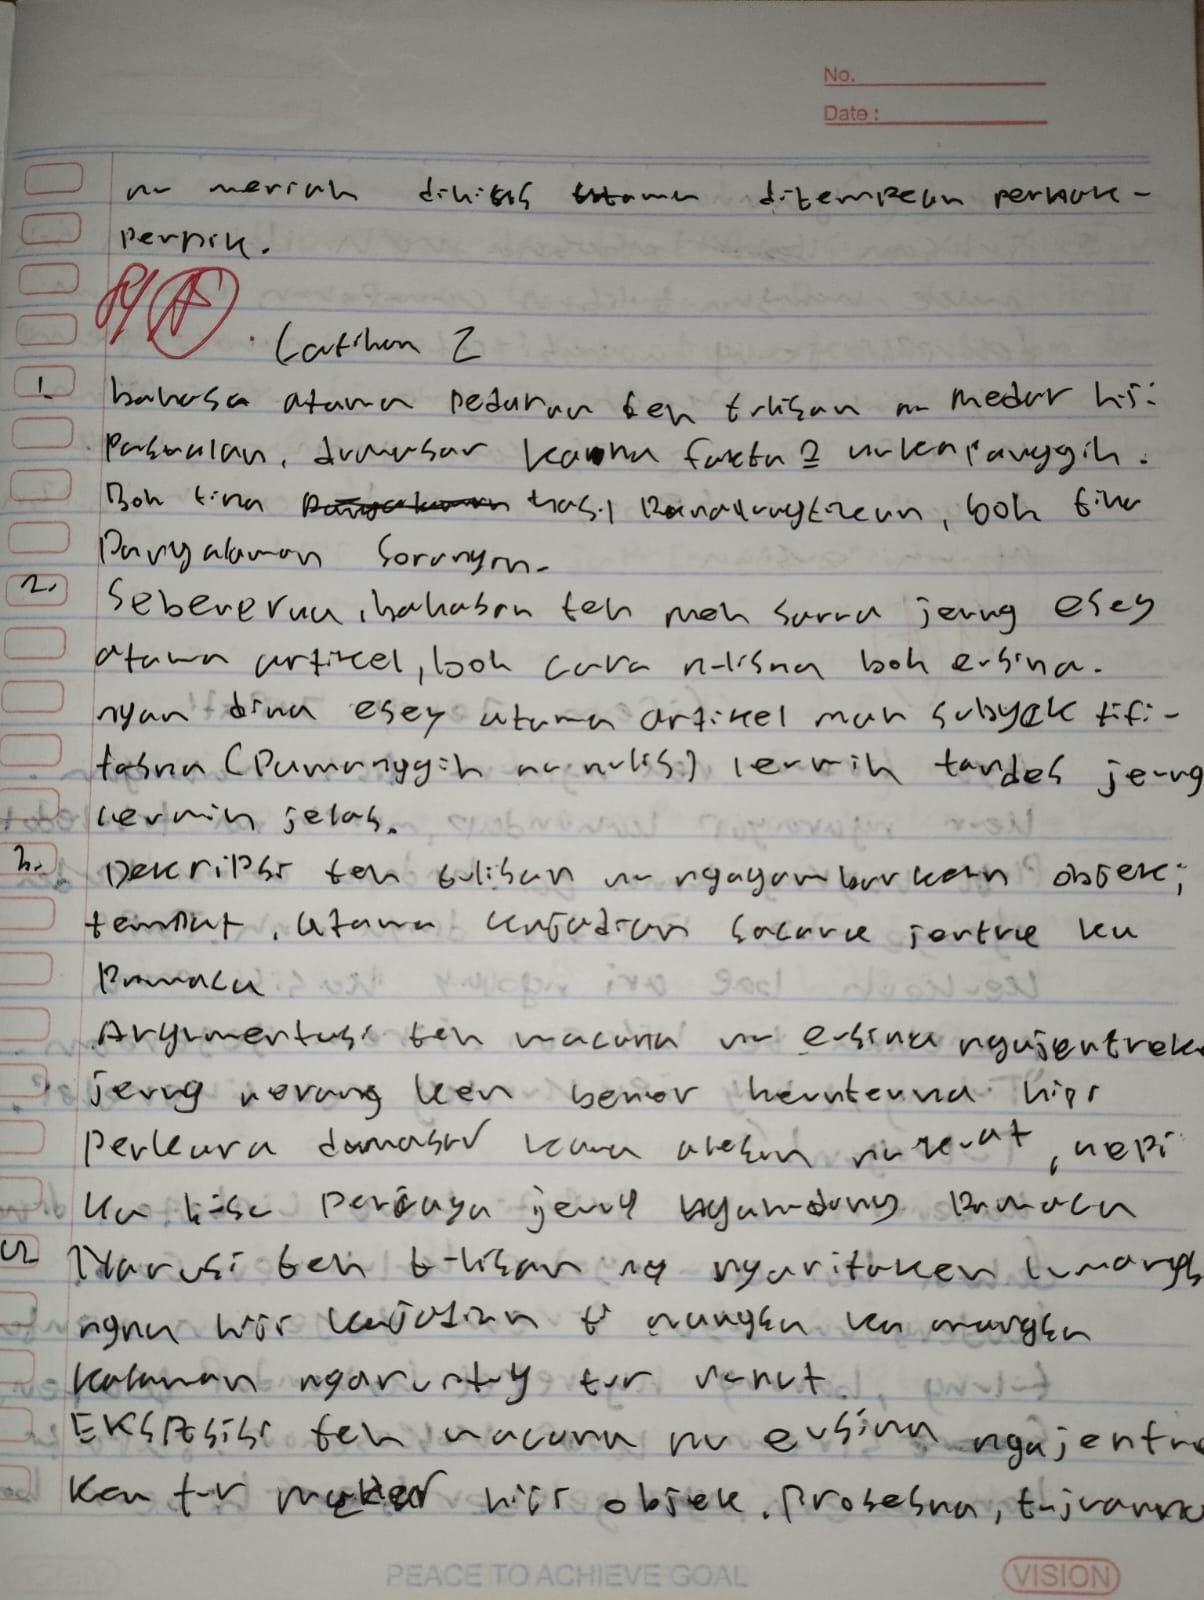 No.
Date :
nu meriah dihias atawa ditempelan pernak-
pernik.
Latihan 2
1. bahasa atawa pedaran teh tulisan nu medar hiji
pasualan, dumasar kana fakta2 nu kapanggih.
Boh tina hasil panalungtikan, boh tina
pangalaman sorangan.
2. Sebenerna, bahasan teh meh sarua jeung esey
atawa artikel, boh cara nulisna boh eusina.
ngan dina esey atawa artikel mah subyektifi-
tasna (pamanggih nu nulis) leuwih tandes jeung
leuwih jelas.
3. Dekripsi teh tulisan nu ngagambarkeun objek,
tempat, atawa kajadian sacara jentre ku
pamaca
Argumentasi teh wacana nu eusina ngajentreke
jeung nerangkeun bener henteuna hiji
perkara dumasar kana alesan nu kuat, nepi
ka bisa percaya jeung ngandung pamaca
Narasi teh tulisan nu nyaritakeun lumangs
ngna hiji kajadian ti mangsa ka mangsa
kalawan ngaruntuy tur runut
Eksposisi teh wacana nu eusina ngajentre
keun tur hiji objek, prosesna, tujuanna
PEACE TO ACHIEVE GOAL
VISION